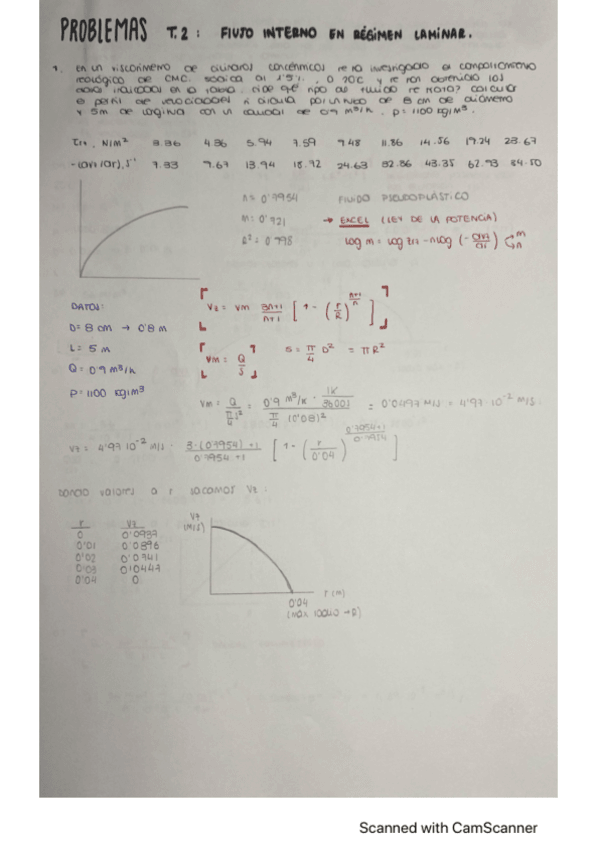 PROBLEMAS T.2: FLUJO INTERNO EN RÉGIMEN LAMINAR.
1. en un viscosímetro de cilindros concéntricos se ha investigado el comportamiento
reológico de CMC sódica al 1'5%, a 20°C y se han obtenido los
datos indicados en la tabla. ¿De qué tipo de fluido se trata? calcular
el perfil de velocidades si circula por un tubo de 8 cm de diámetro
y 5m de longitud con un caudal de 0'9 m³/h. ρ = 1100 kg/m³.
τrz, N/m² 3.36 4.36 5.94 7.59 9.48 11.86 14.56 19.24 23.67
-(dvz/dr), s⁻¹ 7.33 9.67 13.94 18.72 24.63 32.36 43.35 62.93 84.50
n = 0'7954 FLUIDO PSEUDOPLÁSTICO
m = 0'721 → EXCEL (LEY DE LA POTENCIA)
R² = 0'998 log m = log τrz - n log (-dvz/dr) m n
DATOS:
D = 8 cm → 0'8 m
L = 5 m
Q = 0'9 m³/h
ρ = 1100 kg/m³
Vz = Vm 3n+1/n+1 [1 - (r/R)^(n+1/n)]
Vm = Q/S S = π/4 D² = πR²
Vm = Q/(π/4)D² = 0'9 m³/h · 1h/3600s / π/4 (0'08)² = 0'0497 m/s = 4'97·10⁻² m/s.
Vz = 4'97·10⁻² m/s · 3·(0'7954)+1/0'7954+1 [1 - (r/0'04)^(0'7954+1/0'7954)]
Dando valores a r sacamos Vz:
r Vz
0 0'0937
0'01 0'0896
0'02 0'0741
0'03 0'0447
0'04 0
Vz (m/s)
r (m)
0'04